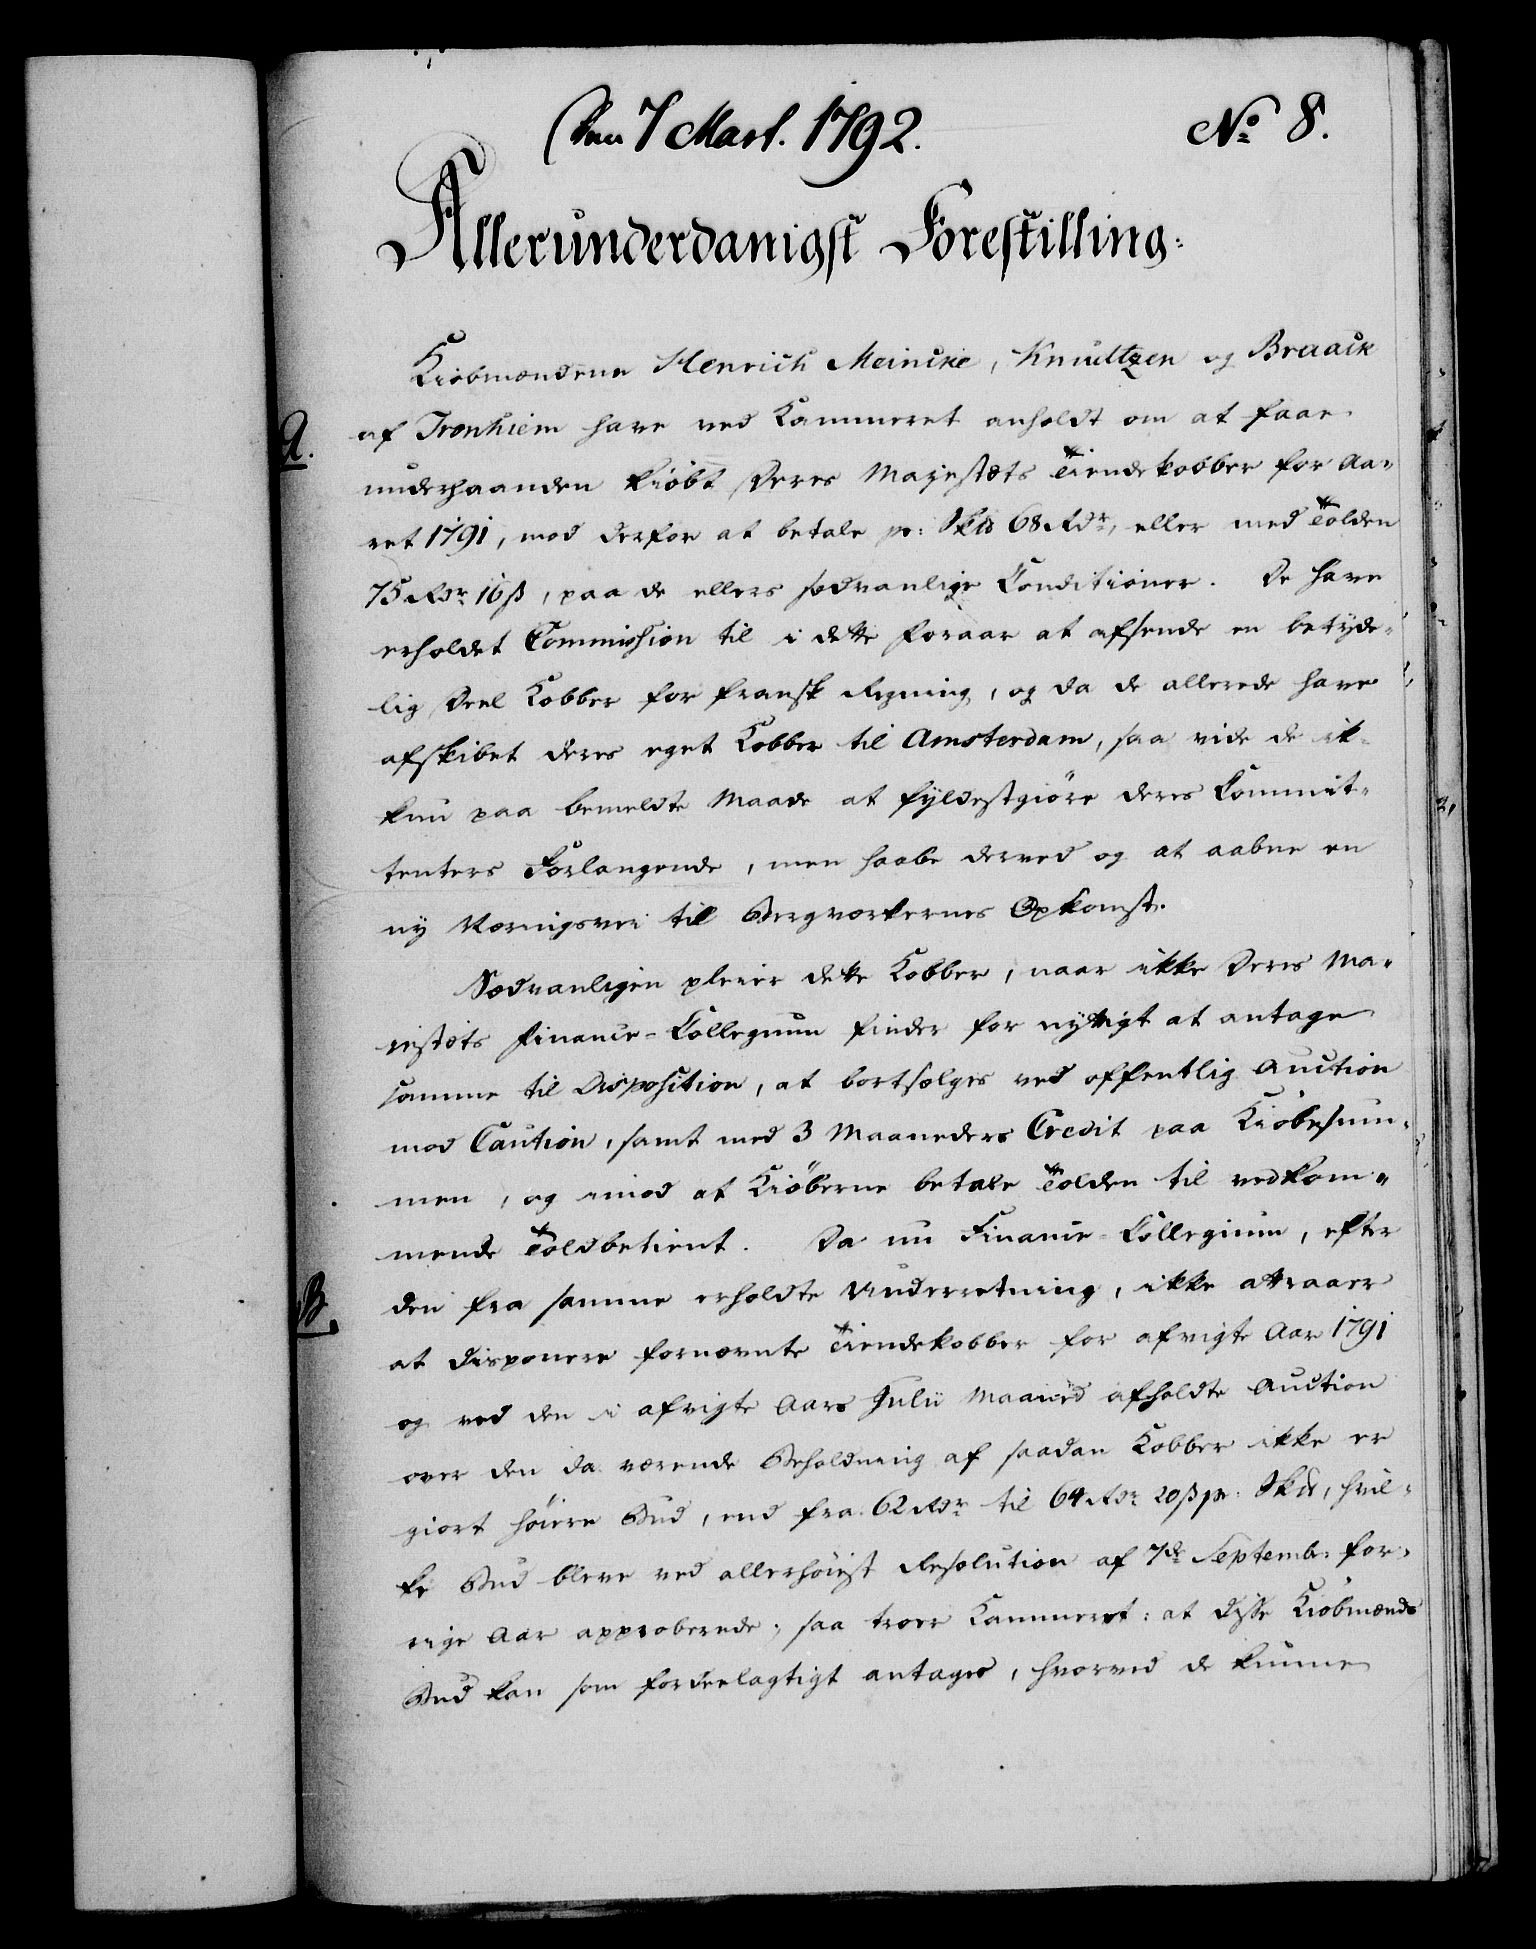 Den 7 Mart. 1792.
No 8.
Allerunderdanigst Forestilling:
Kiøbmændene Henrich Meincke, Knudtzen og Braack
A.
af Tronhiem have ved Kammeret anholdt om at faae
underhaanden kiøbt Deres Majestæts Tiendekobber for Aa-
ret 1791, mod derfor at betale pr: Sk℔ 68 Rdr, eller med Tolden
75 Rdr 16 ß, paa de ellers sædvanlige Conditioner. De have
erholdet Commission til i dette Foraar at afsende en betyde-
lig Deel Kobber for fransk Regning, og da de allerede have
afskibet deres eget Kobber til Amsterdam, saa vide de ik-
kun paa bemeldte Maade at fyldestgiøre deres Commit-
tenters Forlangende, men haabe derved og at aabne en
ny Næringsvei til Bergværkernes Opkomst.
Sædvanligen pleier dette Kobber, naar ikke Deres Ma-
jestæts Finance-Collegium finder for nyttigt at antage
samme til Disposition, at bortsælges ved offentlig Auction
mod Caution, samt med 3 Maaneders Credit paa Kiøbesum-
men, og imod at Kiøberne betale Tolden til vedkom-
mende Toldbetient. Da nu Finance-Collegium, efter
B.
den fra samme erholdte Underretning, ikke attraaer
at disponere fornævnte Tiendekobber for afvigte Aar 1791
og ved den i afvigte Aars Julii Maaned afholdte Auction
over den da værende Beholdning af saadan Kobber ikke er
giort høiere Bud, end fra 62 Rdr til 64 Rdr 20 ß pr. Sk℔, hvil-
ke Bud bleve ved allerhøiest Resolution af 7de Septembr for-
rige Aar approberede; saa troer Kammeret: at disse Kiøbmænds
Bud kan som fordeelagtigt antages, hvorved de kunne